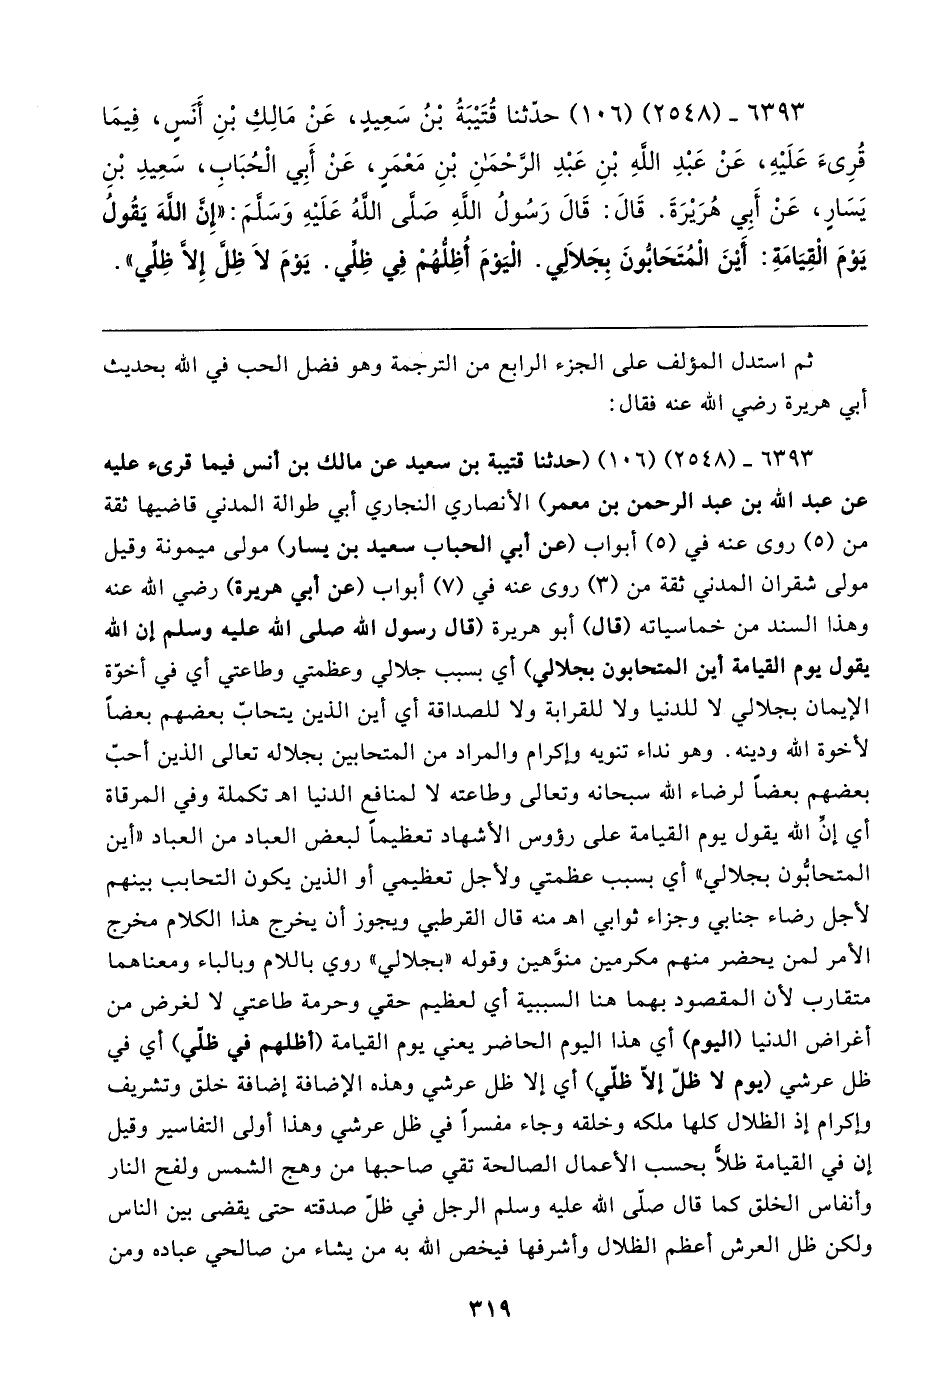 ٦٣٩٣ ـ (٢٥٤٨) (١٠٦) حدّثنا قُتَيْبَةُ بْنُ سَعِيدٍ، عَنْ مَالِكِ بْنِ أَنَسٍ، فِيمَا
قُرِىءَ عَلَيْهِ، عَنْ عَبْدِ اللَّهِ بْنِ عَبْدِ الرَّحْمَنِ بْنِ مَعْمَرٍ، عَنْ أَبِي الْحُبَابِ، سَعِيدِ بْنِ
يَسَارٍ، عَنْ أَبِي هُرَيْرَةَ. قَالَ: قَالَ رَسُولُ اللَّهِ صَلَّى اللَّهُ عَلَيْهِ وَسَلَّمَ: «إِنَّ اللَّهَ يَقُولُ
يَوْمَ الْقِيَامَةِ: أَيْنَ الْمُتَحَابُّونَ بِجَلَالِي. الْيَوْمَ أُظِلُّهُمْ فِي ظِلِّي. يَوْمَ لاَ ظِلَّ إِلاَّ ظِلِّي».
ثم استدل المؤلف على الجزء الرابع من الترجمة وهو فضل الحب في الله بحديث
أبي هريرة رضي الله عنه فقال:
٦٣٩٣ ـ (٢٥٤٨) (١٠٦) (حدثنا قتيبة بن سعيد عن مالك بن أنس فيما قرىء عليه
عن عبد الله بن عبد الرحمن بن معمر) الأنصاري النجاري أبي طوالة المدني قاضيها ثقة
من (٥) روى عنه في (٥) أبواب (عن أبي الحباب سعيد بن يسار) مولى ميمونة وقيل
مولى شقران المدني ثقة من (٣) روى عنه في (٧) أبواب (عن أبي هريرة) رضي الله عنه
وهذا السند من خماسياته (قال) أبو هريرة (قال رسول الله صلى الله عليه وسلم إن الله
يقول يوم القيامة أين المتحابون بجلالي) أي بسبب جلالي وعظمتي وطاعتي أي في أخوّة
الإيمان بجلالي لا للدنيا ولا للقرابة ولا للصداقة أي أين الذين يتحابّ بعضهم بعضاً
لأخوة الله ودينه. وهو نداء تنويه وإكرام والمراد من المتحابين بجلاله تعالى الذين أحبّ
بعضهم بعضاً لرضاء الله سبحانه وتعالى وطاعته لا لمنافع الدنيا اهـ تكملة وفي المرقاة
أي إنِّ الله يقول يوم القيامة على رؤوس الأشهاد تعظيماً لبعض العباد من العباد «أين
المتحابُّون بجلالي» أي بسبب عظمتي ولأجل تعظيمي أو الذين يكون التحابب بينهم
لأجل رضاء جنابي وجزاء ثوابي اهـ منه قال القرطبي ويجوز أن يخرج هذا الكلام مخرج
الأمر لمن يحضر منهم مكرمين منوَّهين وقوله «بجلالي» روي باللام وبالباء ومعناهما
متقارب لأن المقصود بهما هنا السببية أي لعظيم حقي وحرمة طاعتي لا لغرض من
أغراض الدنيا (اليوم) أي هذا اليوم الحاضر يعني يوم القيامة (أظلهم في ظلّي) أي في
ظل عرشي (يوم لا ظلّ إلاّ ظلّي) أي إلا ظل عرشي وهذه الإضافة إضافة خلق وتشريف
وإكرام إذ الظلال كلها ملكه وخلقه وجاء مفسراً في ظل عرشي وهذا أولى التفاسير وقيل
إن في القيامة ظلاًّ بحسب الأعمال الصالحة تقي صاحبها من وهج الشمس ولفح النار
وأنفاس الخلق كما قال صلّى الله عليه وسلم الرجل في ظلّ صدقته حتى يقضى بين الناس
ولكن ظل العرش أعظم الظلال وأشرفها فيخص الله به من يشاء من صالحي عباده ومن
٣١٩